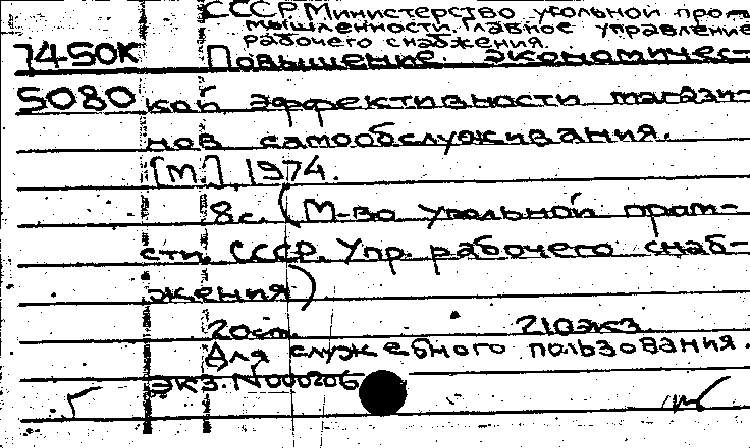 СССР. Министерство угольной про-
мышленности. Главное управление
рабочего снабжения.
74-50К Повышение экономичес-
5080 кой эффективности магази-
нов самообслуживания.
[М], 1974.
8с. (М-во угольной пром-
сти. СССР. Упр. рабочего снаб-
жения)
20см. 210экз.
Для служебного пользования.
экз. N000206